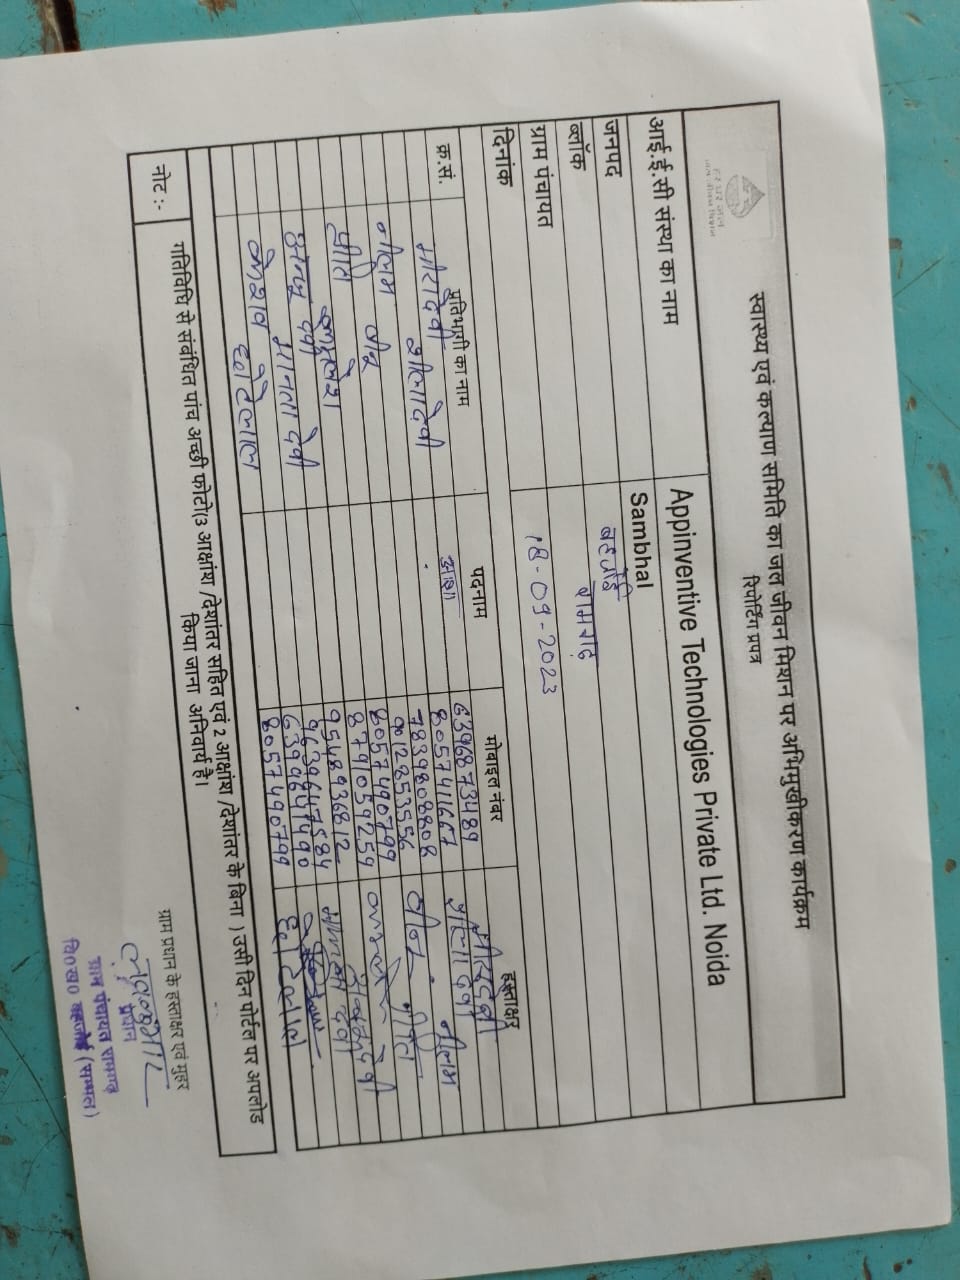 हर घर जल
जल जीवन मिशन
स्वास्थ्य एवं कल्याण समिति का जल जीवन मिशन पर अभिमुखीकरण कार्यक्रम
रिपोर्टिंग प्रपत्र
आई.ई.सी संस्था का नाम Appinventive Technologies Private Ltd. Noida
जनपद Sambhal
ब्लॉक बहजोई
ग्राम पंचायत पामगढ़
दिनांक 18-09-2023
क्र.सं. प्रतिभागी का नाम पदनाम मोबाइल नंबर हस्ताक्षर
मीरा देवी आशा 6396873489 मीरा देवी
शीला देवी 8057411667 शीला देवी नीलम
नीलम 7839808808
चन्द्र 9012853556
प्रीति 8057490799 प्रीति
कमलेश 8791059254
9548936812
मानता देवी 9639647584 मानता देवी
केशव 6399614490
छोटेलाल 8057490799 छोटेलाल
नोट :- गतिविधि से संबंधित पांच अच्छी फोटो(3 आक्षांश /देशांतर सहित एवं 2 आक्षांश /देशांतर के बिना ) उसी दिन पोर्टल पर अपलोड
किया जाना अनिवार्य है।
ग्राम प्रधान के हस्ताक्षर एवं मुहर
प्रधान
ग्राम पंचायत पामगढ़
वि0ख0 बहजोई (सम्भल)